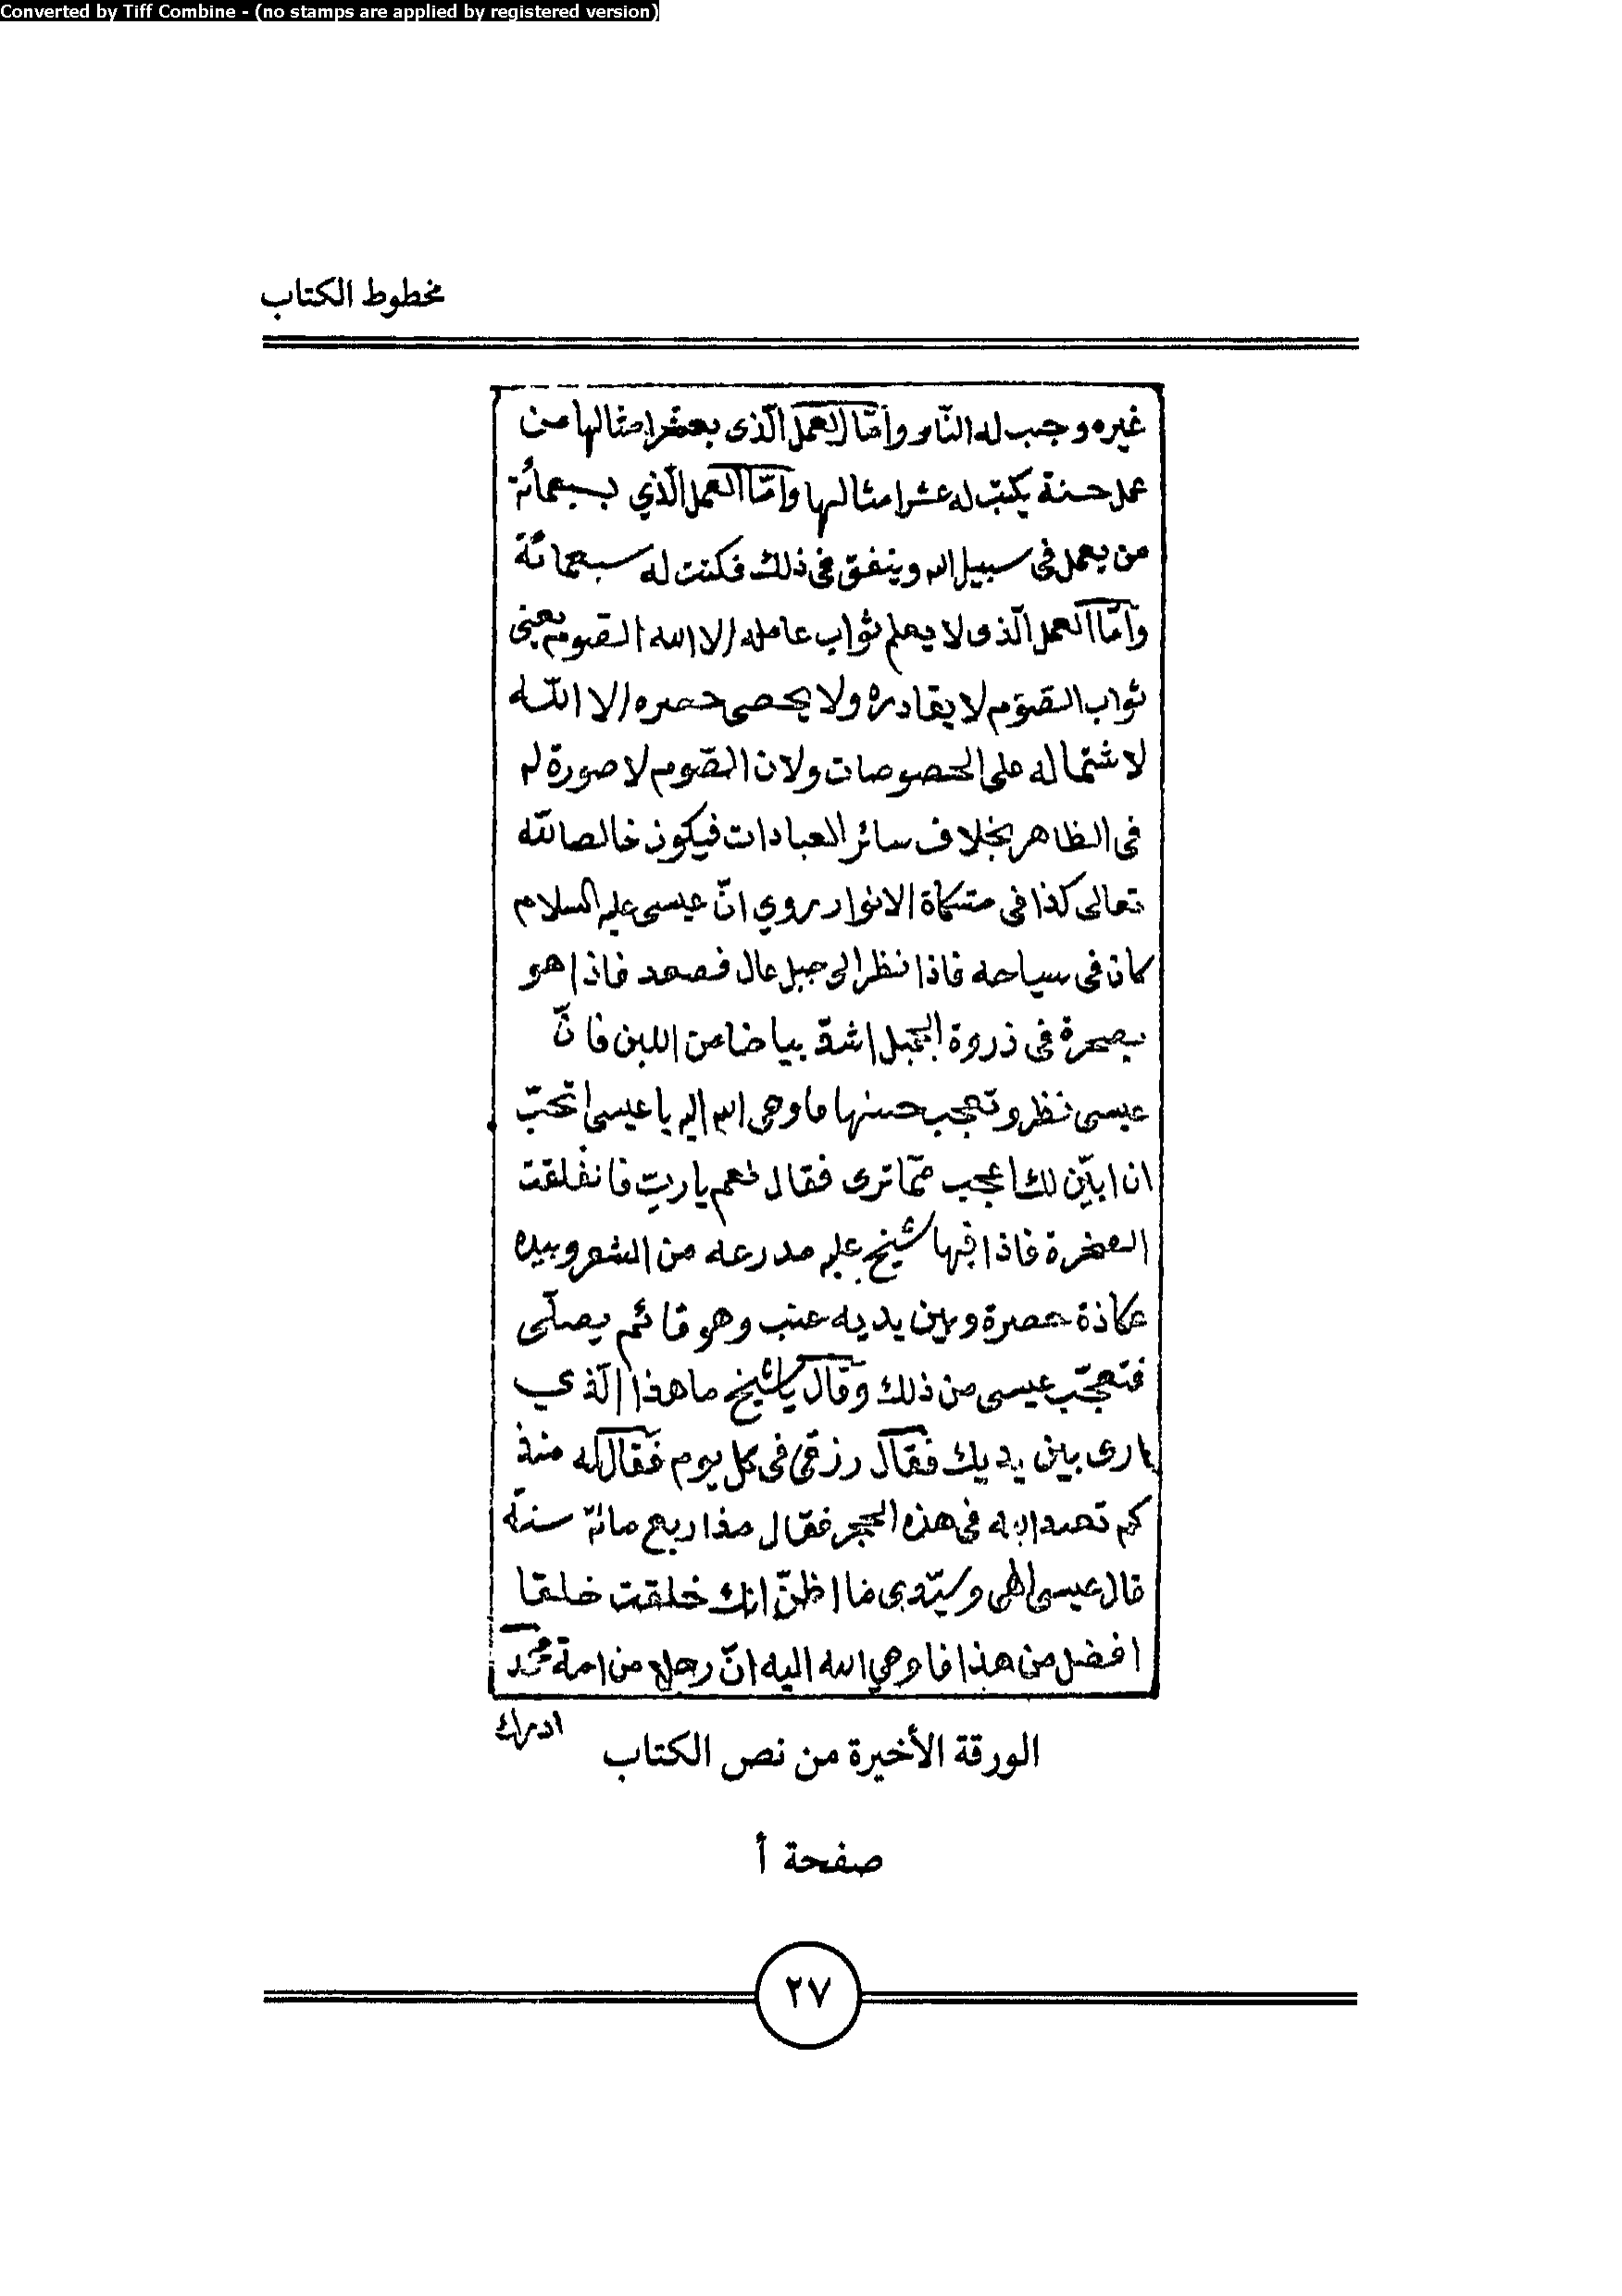 Converted by Tiff Combine - (no stamps are applied by registered version)
مخطوط الكتاب
غيره وجب له النار وامّا العمل الّذى بعشر امثالها من
عمل حسنة يكتب له عشر امثالها وامّا العمل الّذي بسبعمائة
من يعمل فى سبيل الله وينفق فى ذلك فكتبت له سبعمائة
وامّا العمل الّذى لا يعلم ثواب عامله الا الله الصّوم يعنى
ثواب الصّوم لا يقادره ولا يحصى حصره الا اللّه
لاشتماله على الخصوصات ولان الصّوم لا صورة له
فى الظاهر بخلاف سائر العبادات فيكون خالصا للّه
تعالى كذا فى مشكاة الانوار روي انّ عيسى عليه السلام
كان فى سياحه فاذا نظر الى جبل عال فصعد فاذا هو
بصخرة فى ذروة الجبل اشدّ بياضا من اللبن فانّ
عيسى نظر وتعجب حسنها فاوحى الله اليه يا عيسى اتحبّ
ان ابيّن لك اعجب ممّا ترى فقال نعم يا ربّ فانفلقت
الصخرة فاذا فيها شيخ عليه مدرعه من الشعر وبيده
عكاذة حصرة وبين يديه عنب وهو قائم يصلّى
فتعجّب عيسى من ذلك وقال يا شيخ ما هذا الّذي
ارى بين يديك فقال رزقى فى كل يوم فقال له منذ
كم تعبد الله فى هذه الحجر فقال مذ اربع مائة سنة
قال عيسى الهى وسيّدى ما اظنّ انك خلقت خلقا
افضل من هذا فاوحي الله اليه انّ رجلا من امة محمد
ادرك
الورقة الأخيرة من نص الكتاب
صفحة أ
٢٧